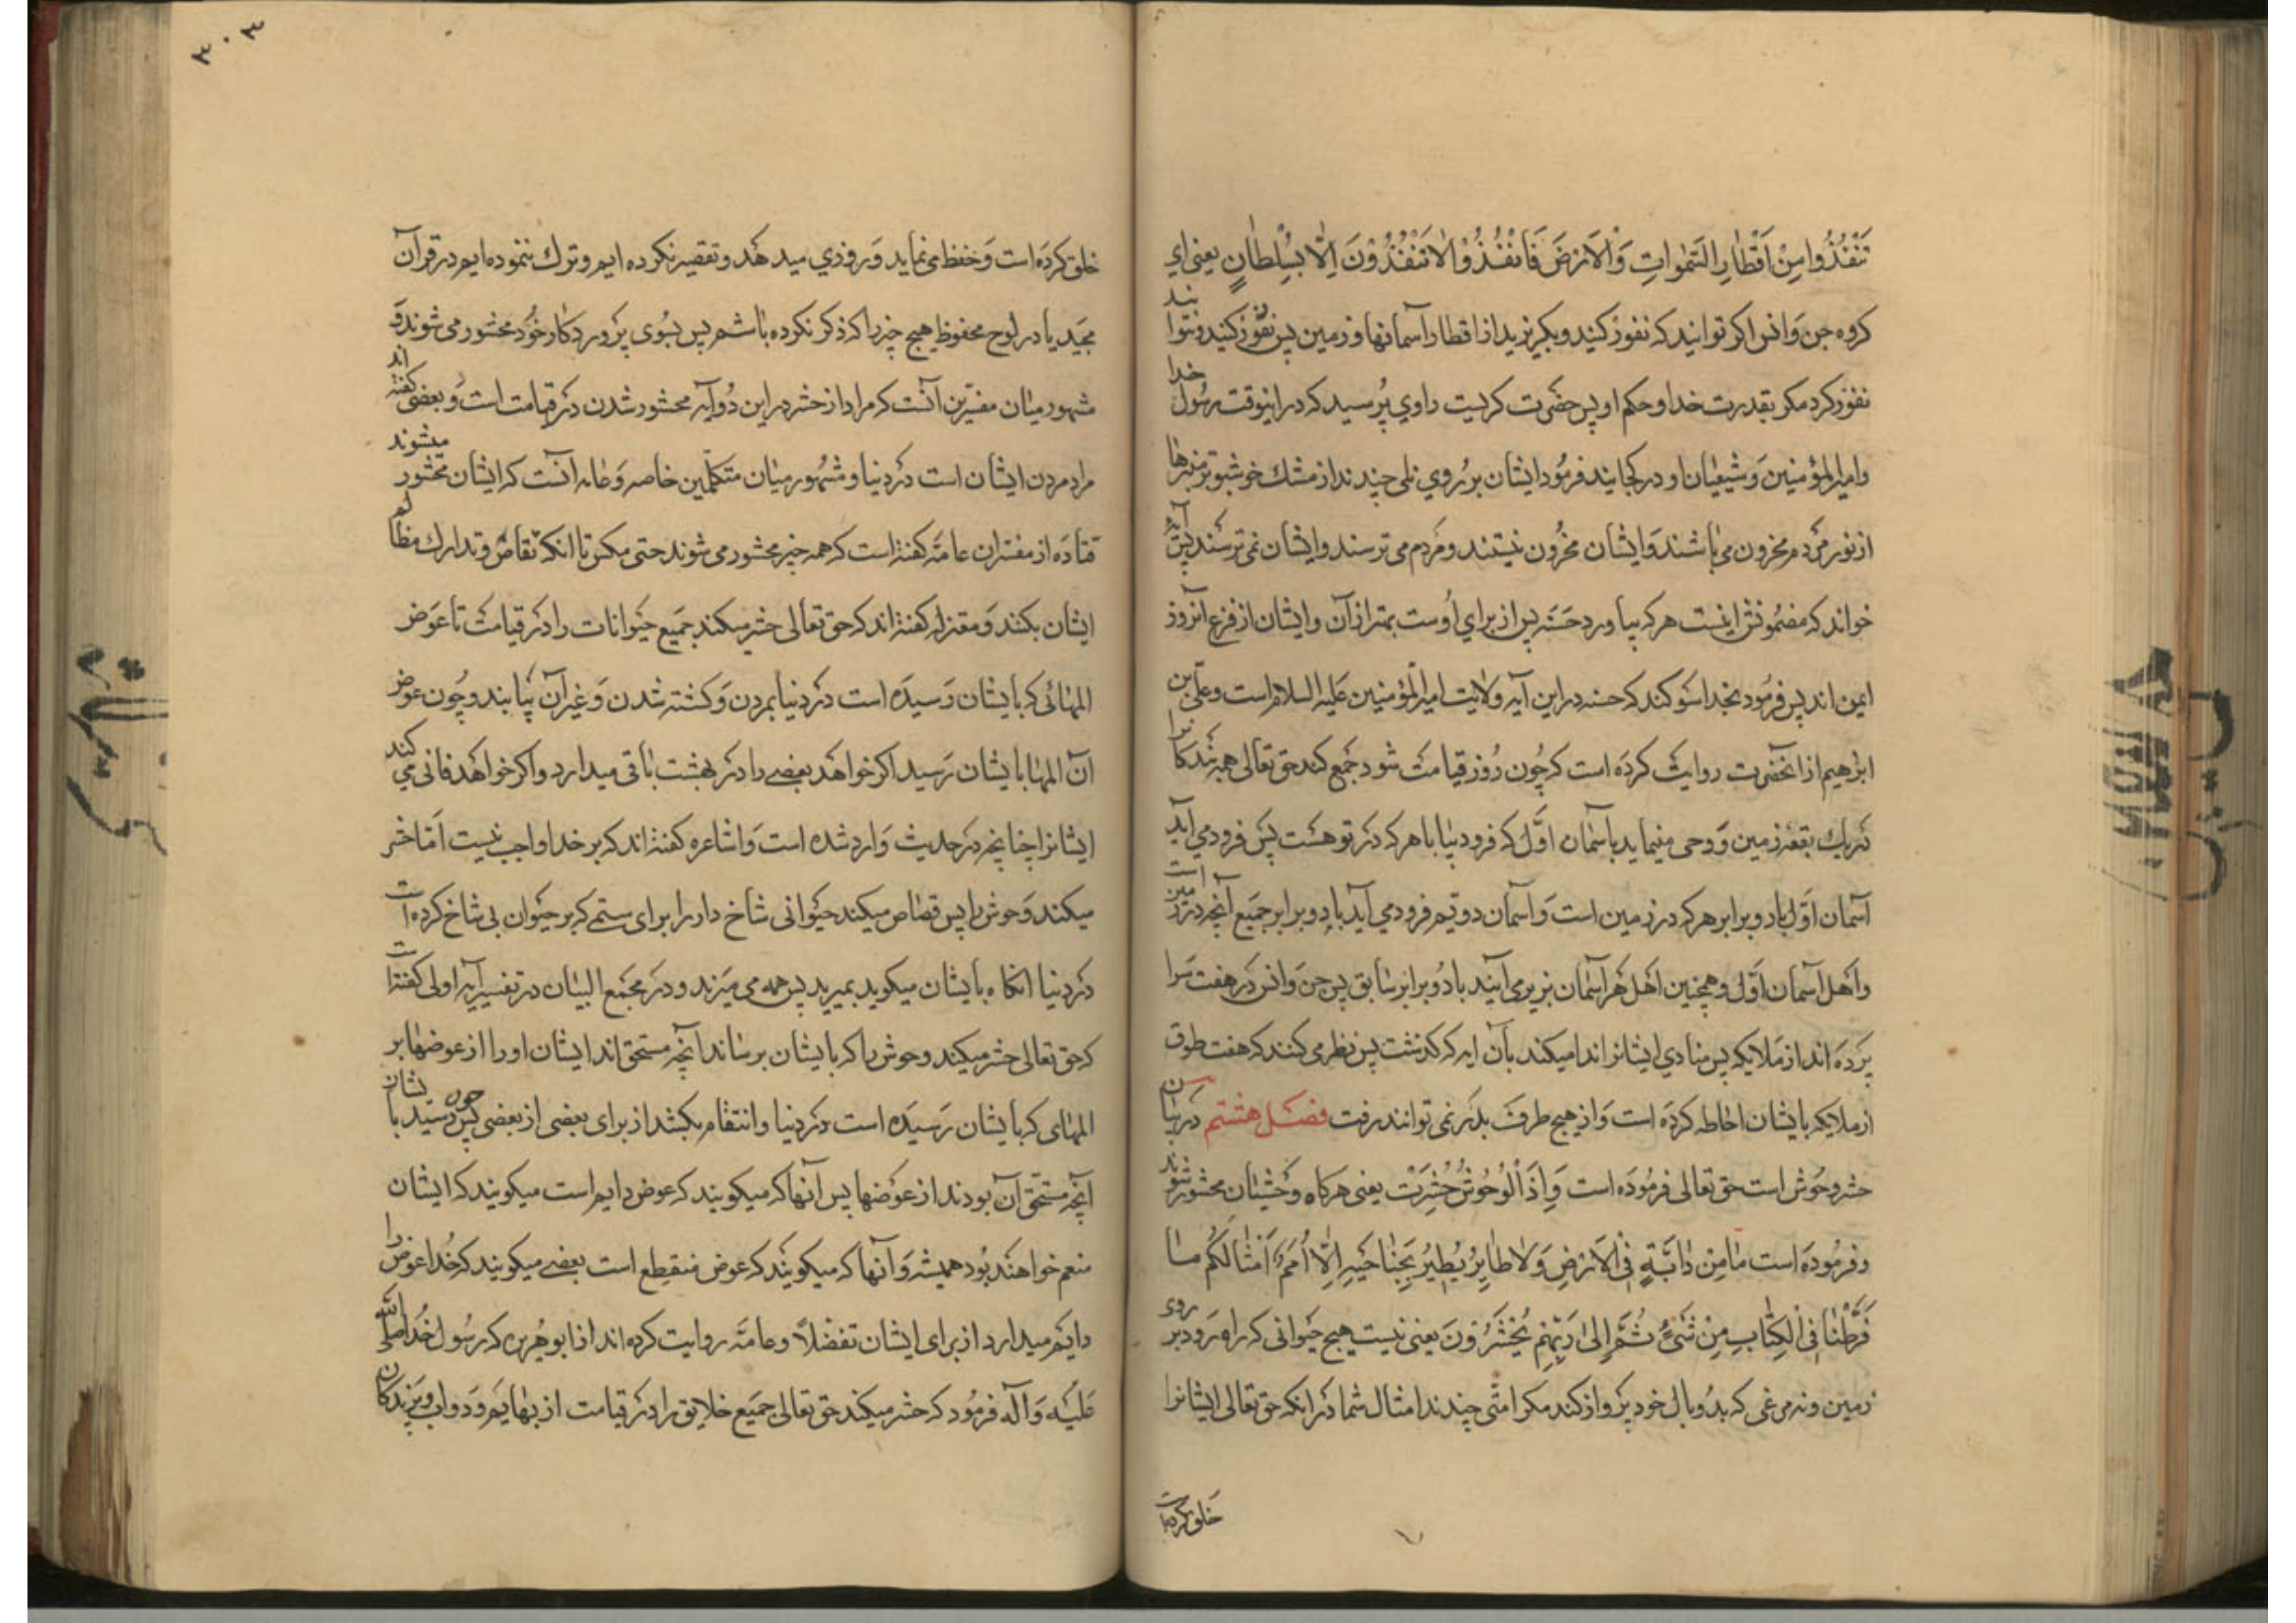 تَنْفُذُوا مِنْ اَقْطارِ السَّمٰواتِ وَالْاَرْضِ فَانْفُذُوْا لاٰ تَنْفُذُوْنَ اِلّٰا بِسُلْطانٍ يعنى اي
كروه جن وانس اكر توانيد كه نفوذ كنيد وبكريزيد از اقطار آسمانها وزمين پس نفوذ كنيد ونتوانيد
نفوذ كرد مكر بقدرت خدا وحكم او پس حضرت كريست راوي پرسيد كه در اينوقت رسول خدا
وامير المؤمنين وشيعيان او در كجايند فرمود ايشان بر روي تلى چندند از مشك خوشبوتر منبرها
از نور مردم محزون مى باشند وايشان محزون نيستند ومردم مى ترسند وايشان نمى ترسند پس آيهٴ
خواند كه مضمونش اينست هر كه بياورد حسنه پس از براي اوست بهتر از آن وايشان از فزع آنروز
ايمن اند پس فرمود بخدا سوكند كه حسنه در اين آيه ولايت امير المؤمنين عليه السلام است وعلى بن
ابرهيم از انحضرت روايت كرده است كه چون روز قيامت شود جمع كند حق تعالى همه بندكانرا
در يك بقعه زمين ووحى مينمايد بآسمان اول كه فرود بيا با هر كه در تو هست پس فرود مي آيد
آسمان اول با دو برابر هر كه در زمين است وآسمان دويم فرود مي آيد با دو برابر جميع آنچه در زمين است
واهل آسمان اول وهمچنين اهل هر آسمان بزير مى آيند با دو برابر سابق پس جن وانس در هفت سرا
پرده اند از ملايكه پس منادي ايشانرا ندا ميكند بآن ايه كه كذشت پس نظر مى كنند كه هفت طوق
از ملايكه بايشان احاطه كرده است واز هيچ طرف بدر نمى توانند رفت فصل هشتم در بيان
حشر وحوش است حق تعالى فرموده است وَاِذَا الْوُحُوشُ حُشِرَتْ يعنى هركاه وحشيان محشور شوند
وفرموده است مٰا مِنْ دٰابَّةٍ فِى الْاَرْضِ وَلاٰ طٰايِرٍ يَطِيْرُ بِجَنٰاحَيْهِ اِلّٰا اُمَمٌ اَمْثٰالُكُمْ مٰا
فَرَّطْنٰا فِى الْكِتٰابِ مِنْ شَىْءٍ ثُمَّ اِلىٰ رَبِّهِمْ يُحْشَرُوْنَ يعنى نيست هيچ حيوانى كه راه رود بر روى
زمين ونه مرغى كه بدو بال خود پرواز كند مكر امتى چندند امثال شما در انكه حق تعالى ايشانرا
خلق كرده است
٣٠٣
خلق كرده است وحفظ مى نمايد وروزي ميدهد وتقصير نكرده ايم وترك ننموده ايم در قرآن
مجيد يا در لوح محفوظ هيچ چيز را كه ذكر نكرده باشم پس بسوى پروردكار خود محشور مى شوند و
مشهور ميان مفسرين آنست كه مراد از حشر در اين دو آيه محشور شدن در قيامت است وبعضى كفته اند
مراد مردن ايشان است در دنيا ومشهور ميان متكلمين خاصه وعامه انست كه ايشان محشور ميشوند
قتاده از مفسران عامه كفته است كه همه چيز محشور مى شوند حتى مكس تا انكه تقاص وتدارك مظالم
ايشان بكنند ومعتزله كفته اند كه حق تعالى حشر ميكند جميع حيوانات را در قيامت تا عوض
المهائى كه بايشان رسيده است در دنيا بمردن وكشته شدن وغير آن بيابند وچون عوض
آن المها بايشان رسيد اكر خواهد بعضى را در بهشت باقى ميدارد واكر خواهد فانى مي كند
ايشانرا چنانچه در حديث وارد شده است واشاعره كفته اند كه بر خدا واجب نيست اما حشر
ميكند وحوش را پس قصاص ميكند حيوانى شاخ دار را براى ستمى كه بر حيوان بى شاخ كرده است
در دنيا انكاه بايشان ميكويد بميريد پس همه مى ميرند ودر مجمع البيان در تفسير آيه اولى كفته است
كه حق تعالى حشر ميكند وحوش را كه بايشان برساند آنچه مستحق اند ايشان او را از عوضها بر
المهاى كه بايشان رسيده است در دنيا وانتقام بكشد از براى بعضى از بعضى پس چون رسيد بايشان
آنچه مستحق آن بودند از عوضها پس آنها كه ميكويند كه عوض دايم است ميكويند كه ايشان
منعم خواهند بود هميشه وآنها كه ميكويند كه عوض منقطع است بعضى ميكويند كه خدا عوض را
دايم ميدارد از براى ايشان تفضلاً وعامه روايت كرده اند از ابو هريره كه رسول خدا صلى الله
عليه وآله فرمود كه حشر ميكند حق تعالى جميع خلايق را در قيامت از بهايم ودواب وپرندكان